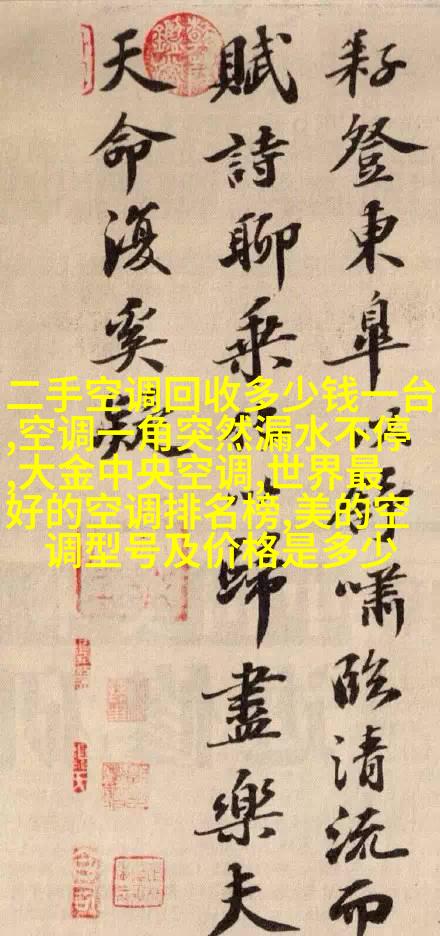 耔登東皋舒嘯臨清流而
賦詩聊乘以歸盡樂夫
天命復奚疑
二手空调回收多少钱一台
,空调一角突然漏水不停
,大金中央空调,世界最
好的空调排名榜,美的空
调型号及价格是多少